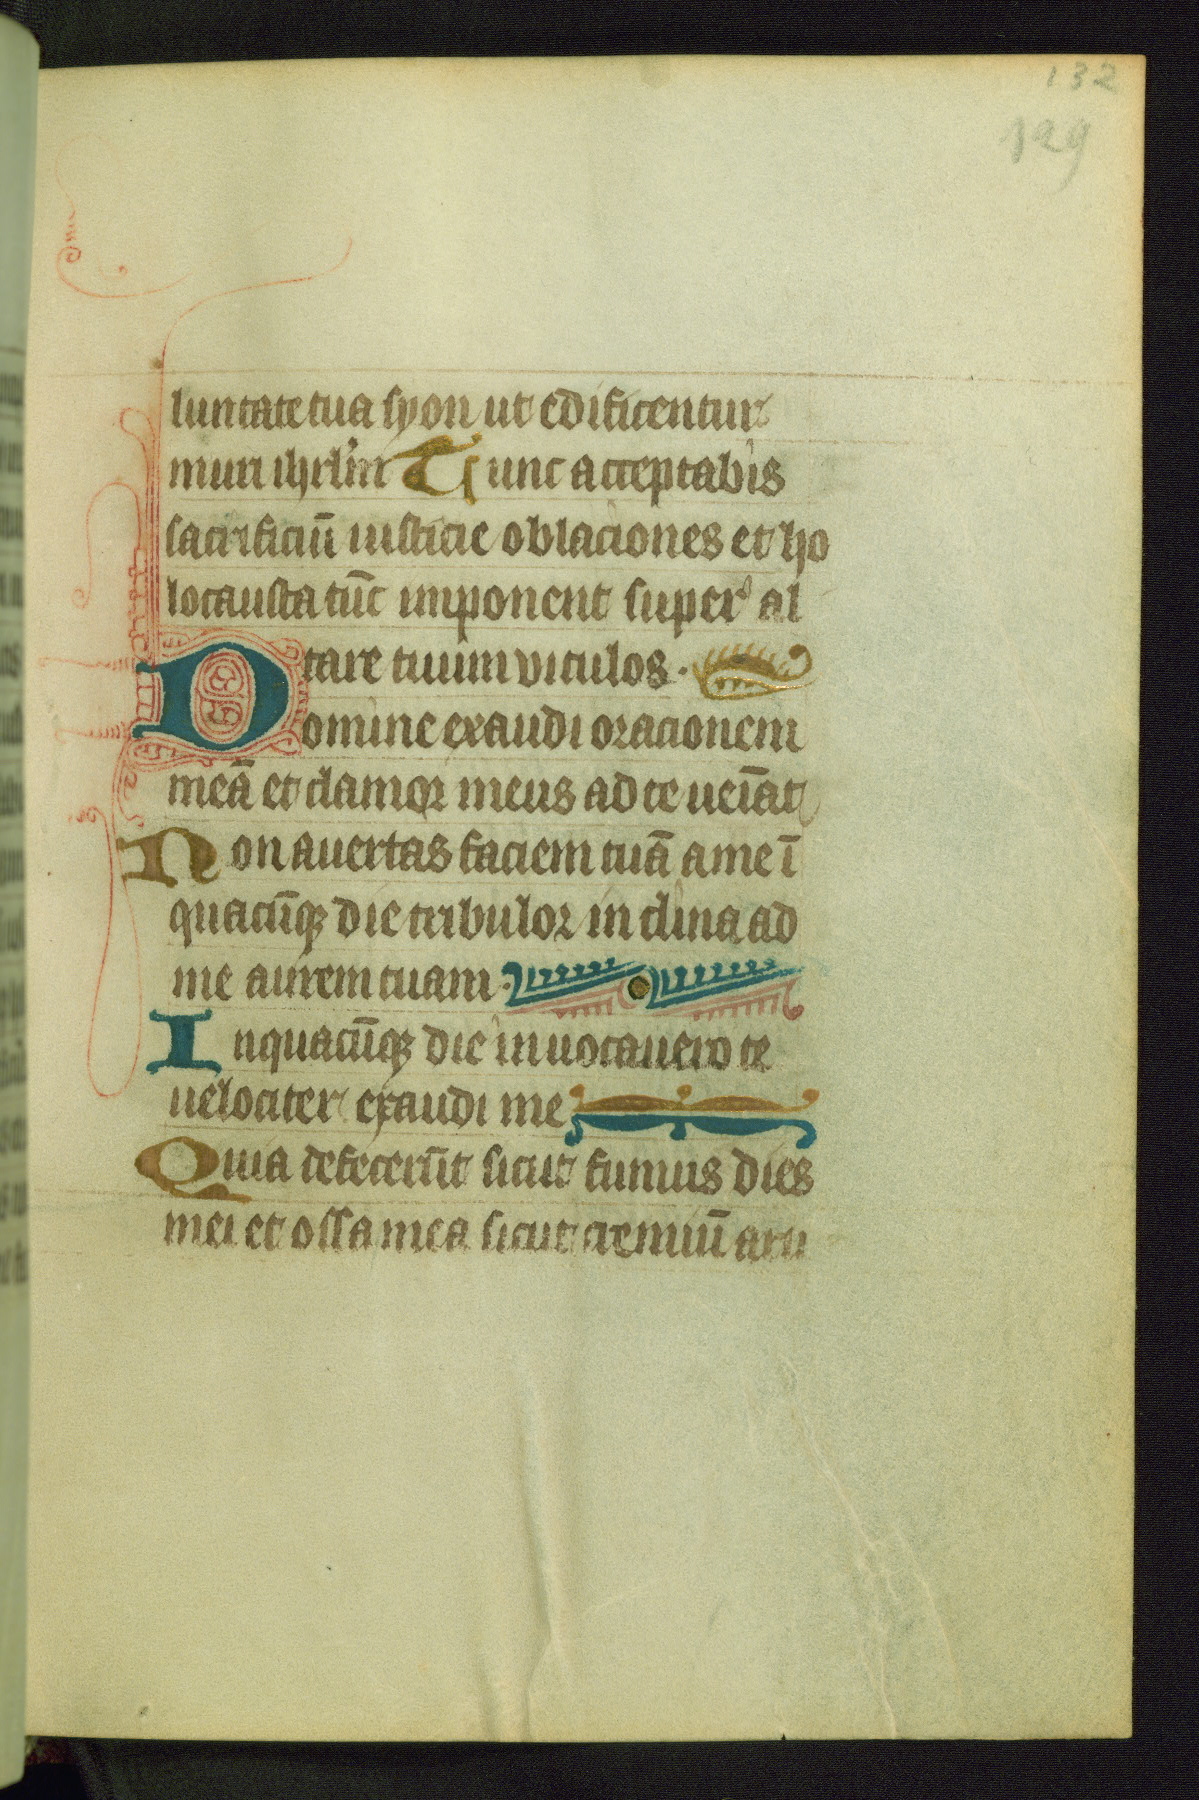 132
129
luntate tua syon ut edificentur
muri ihrl'm Tunc acceptabis
sacrificiū iusticie oblaciones et ho
locausta tūc imponent super al
tare tuum vitulos.
Domine exaudi oracionem
meā et clamor meus ad te ueīat
Non auertas faciem tuā a me ī
quacūqꝫ die tribulor inclina ad
me aurem tuam.
In quacūqꝫ die inuocauero te
uelociter exaudi me
Quia defecerūt sicut fumus dies
mei et ossa mea sicut cremiū aru